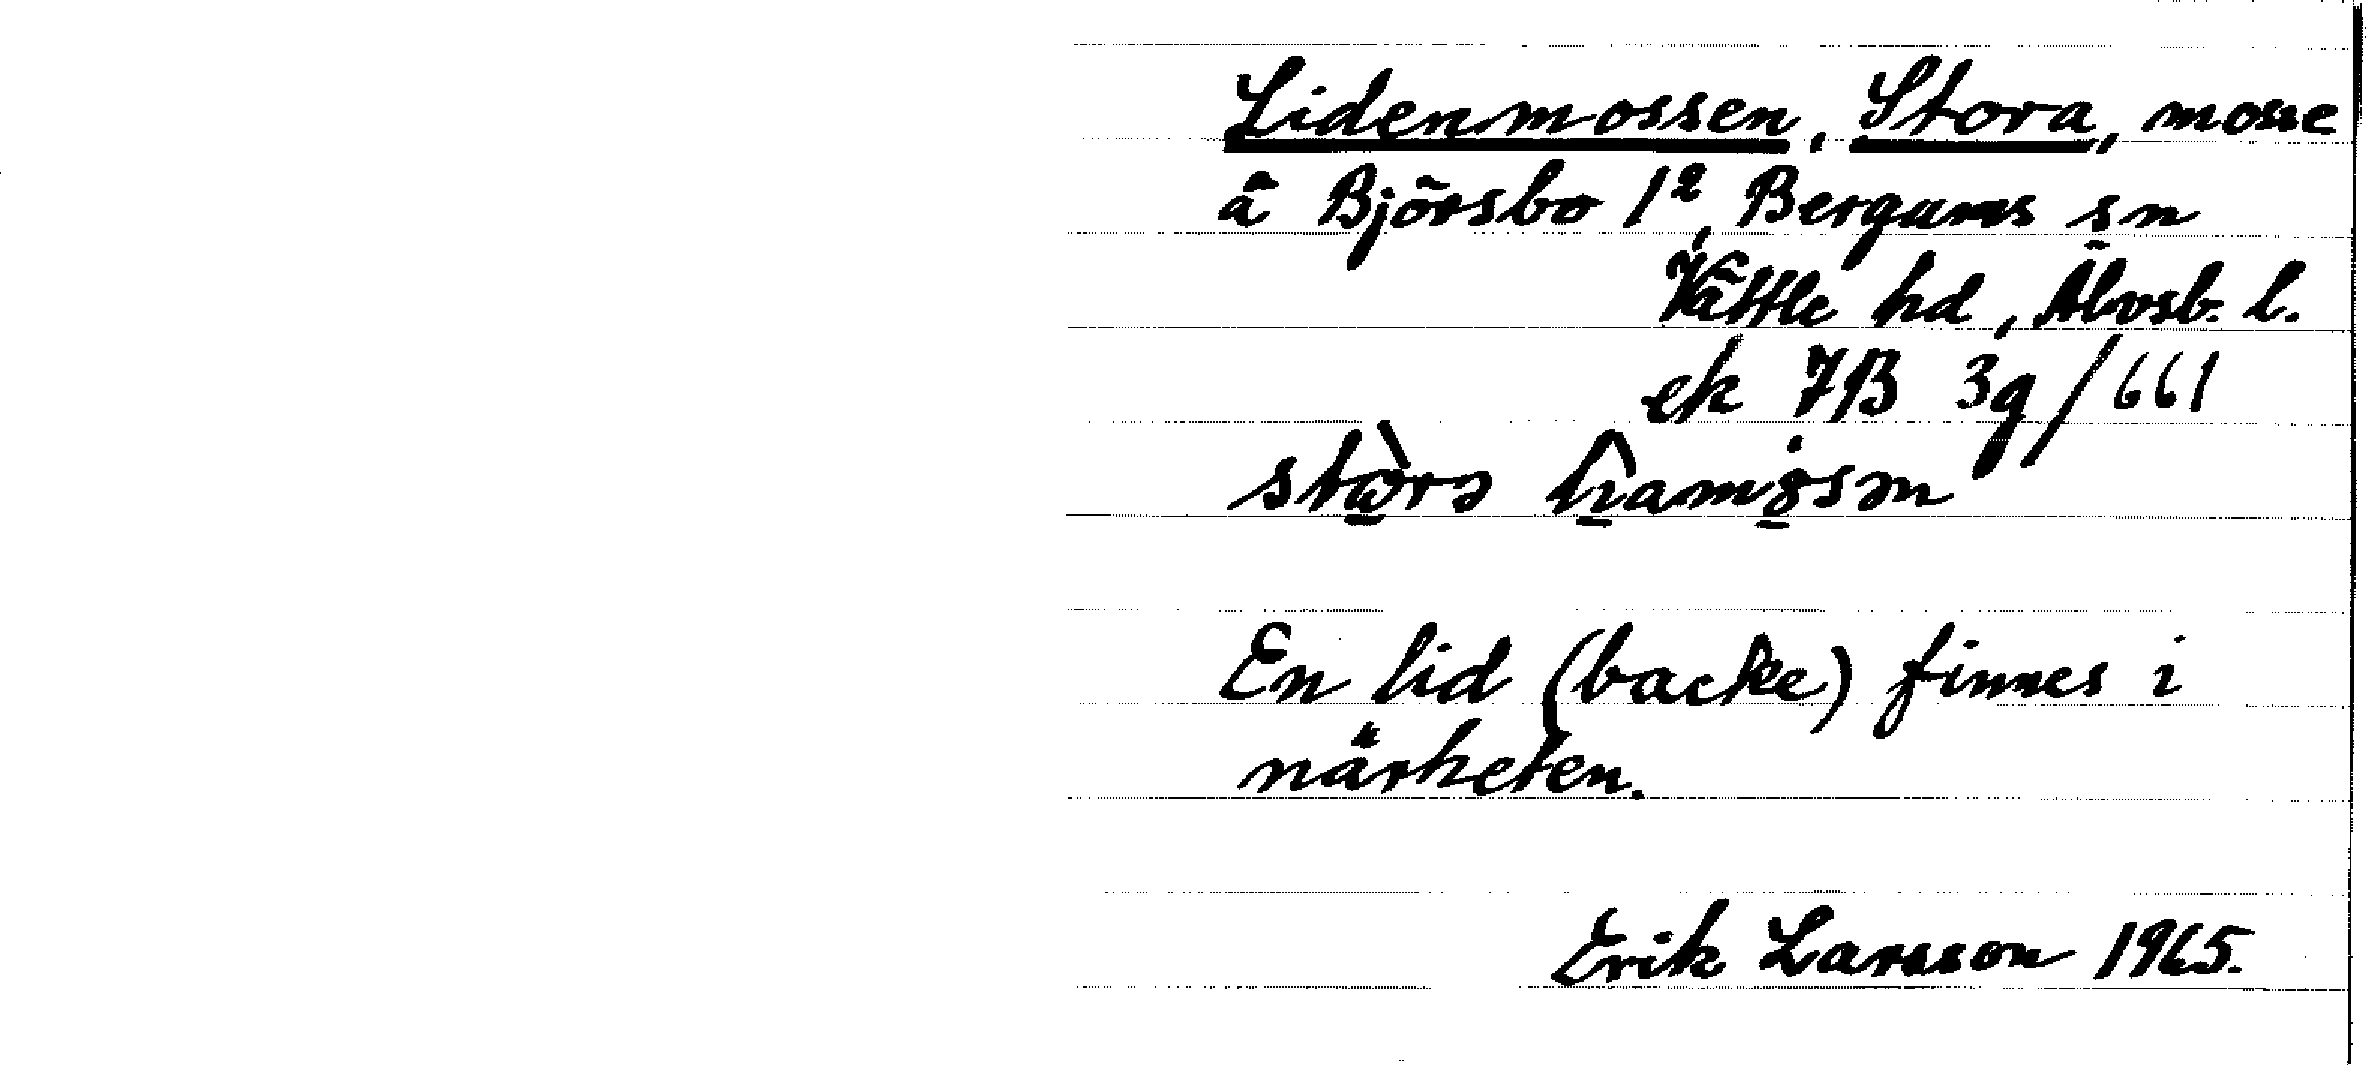 Lidenmossen, Stora, mosse
å Björsbo 1², Bergums sn
Vättle hd, Älvsb. l.
ek 7B 3g/661
En lid (backe) finnes i
närheten.
Erik Larsson 1965.